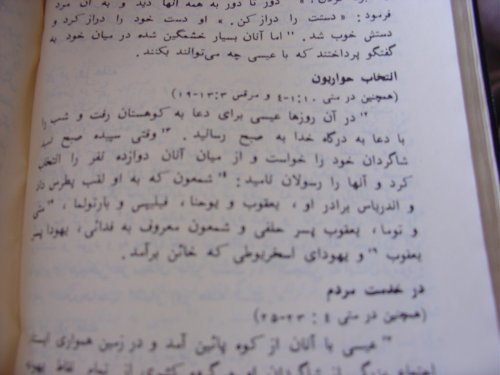 دور تا دور به همهٔ آنها دید و به آن مرد
فرمود: «دستت را دراز کن.» او دست خود را دراز کرد و
دستش خوب شد. ¹¹ اما آنان بسیار خشمگین شده در میان خود به
گفتگو پرداختند که با عیسی چه می‌توانند بکنند.
انتخاب حواریون
(همچنین در متی ۱:۱۰-۴ و مرقس ۱۳:۳-۱۹)
¹² در آن روزها عیسی برای دعا به کوهستان رفت و شب را
با دعا به درگاه خدا به صبح رسانید. ¹³ وقتی سپیده صبح
شاگردان خود را خواست و از میان آنان دوازده نفر را انتخاب
کرد و آنها را رسولان نامید: ¹⁴ شمعون که به او لقب پطرس داد
و اندریاس برادر او، یعقوب و یوحنا، فیلیپس و بارتولما، ¹⁵ متی
و توما، یعقوب پسر حلفی و شمعون معروف به فدائی، یهودا پسر
یعقوب ¹⁶ و یهودای اسخریوطی که خائن برآمد.
در خدمت مردم
(همچنین در متی ۴: ۲۳-۲۵)
¹⁷ عیسی با آنان از کوه پائین آمد و در زمین همواری
از شاگردان او و گروه کثیری از تمام نقاط